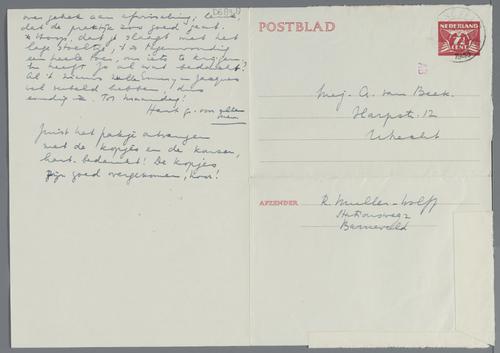 over gebrek aan afwisseling,
dat de praktijk zoo goed gaat.
Hoop, dat je slaagt met het
lage stoeltje, 't is tegenwoordig
een heele toer, om iets te krijgen.
Al 't nieuws zullen en Jacques
wel verteld hebben, dus
eindig ik. Tot maandag!
Hart. gr. van allen
Juist het pakje ontvangen
met de kopjes en de kaarsen,
hart. bedankt! De kopjes
zijn goed overgekomen, hoor!
POSTBLAD
NEDERLAND
7½
CENT
Mej. A. van Beek.
Harpstr. 12
Utrecht
AFZENDER R. Muller-Wolff
Stationsweg 2
Barneveld